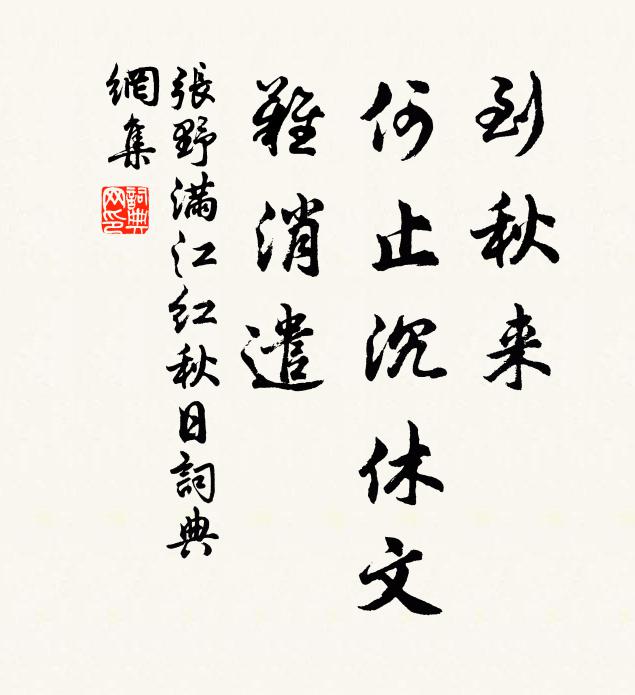 到秋来
何止沉休文
難消遣
張野満江红秋日詞典
網集
詞典
网印